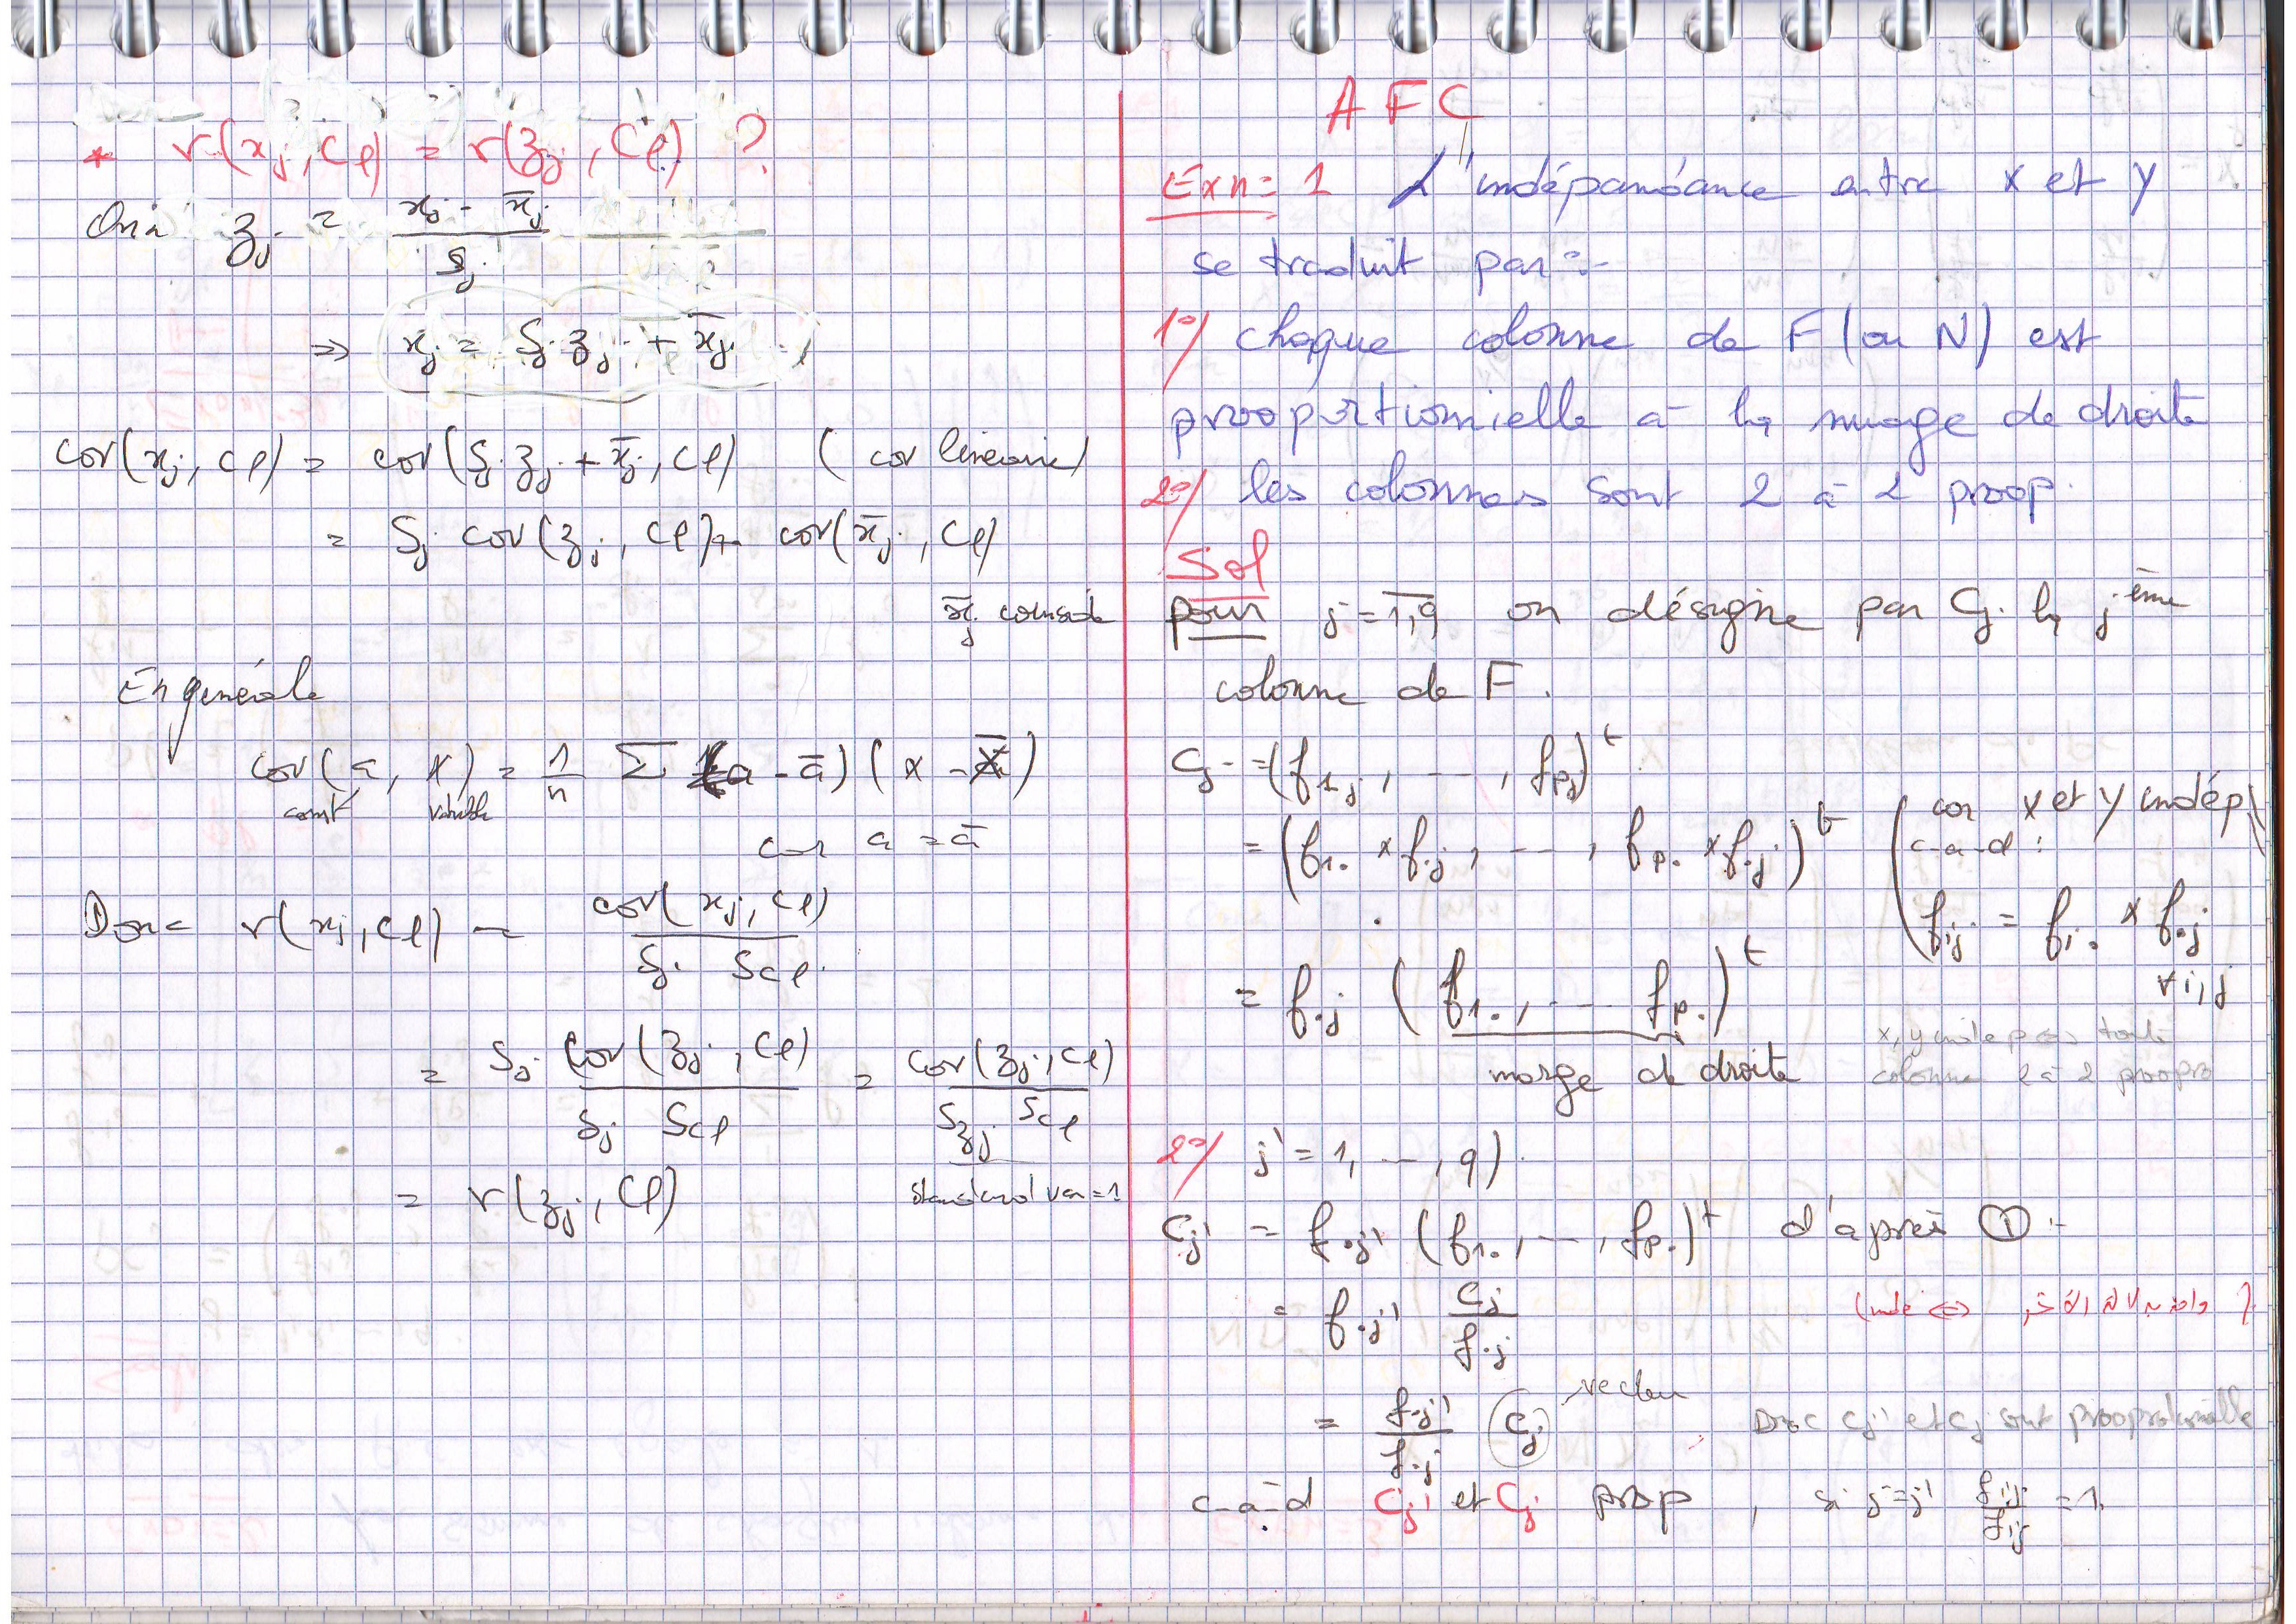 * r(xj, Cl) = r(zj, Cl) ?
On a zj = (xj - x̄j) / Sj
=> xj = Sj zj + x̄j
cov(xj, Cl) = cov(Sj zj + x̄j, Cl) (cov lineaire)
= Sj cov(zj, Cl) + cov(x̄j, Cl)
x̄j
En générale
cov(a, X) = 1/n Σ (a - ā) (x - X̄)
const variable
car a = ā
Donc r(xj, Cl) = cov(xj, Cl) / Sj SCl
= Sj cov(zj, Cl) / Sj SCl = cov(zj, Cl) / Szj SCl
= r(zj, Cl)
standard var = 1
AFC
Exn=1 L'indépandance entre x et y
se traduit par :-
1°/ chaque colonne de F (ou N) est
prooportionnielle à la marge de droite
2°/ les colonnes sont 2 à 2 proop.
Sol
pour j = 1,q on désigne par Cj la j ème
colonne de F.
Cj = (f1j, ---, fpj)^t
= (f1. × f.j, ---, fp. × f.j)^t
(car x et y indép
c-a-d :
fij = fi. × f.j
∀ i,j
= f.j (f1., --- fp.)^t
marge de droite
x, y indep => toute
colonne 2 à 2 proopro
2°/ j' = 1, --, q)
Cj' = f.j' (f1., --, fp.)^t d'après ① :-
= f.j' Cj / f.j
(inde <=>
= f.j' / f.j (Cj) vecteu
Donc Cj' et Cj sont prooprotionielle
c-a-d Cj' et Cj prop , si j=j' fij / fij = 1.